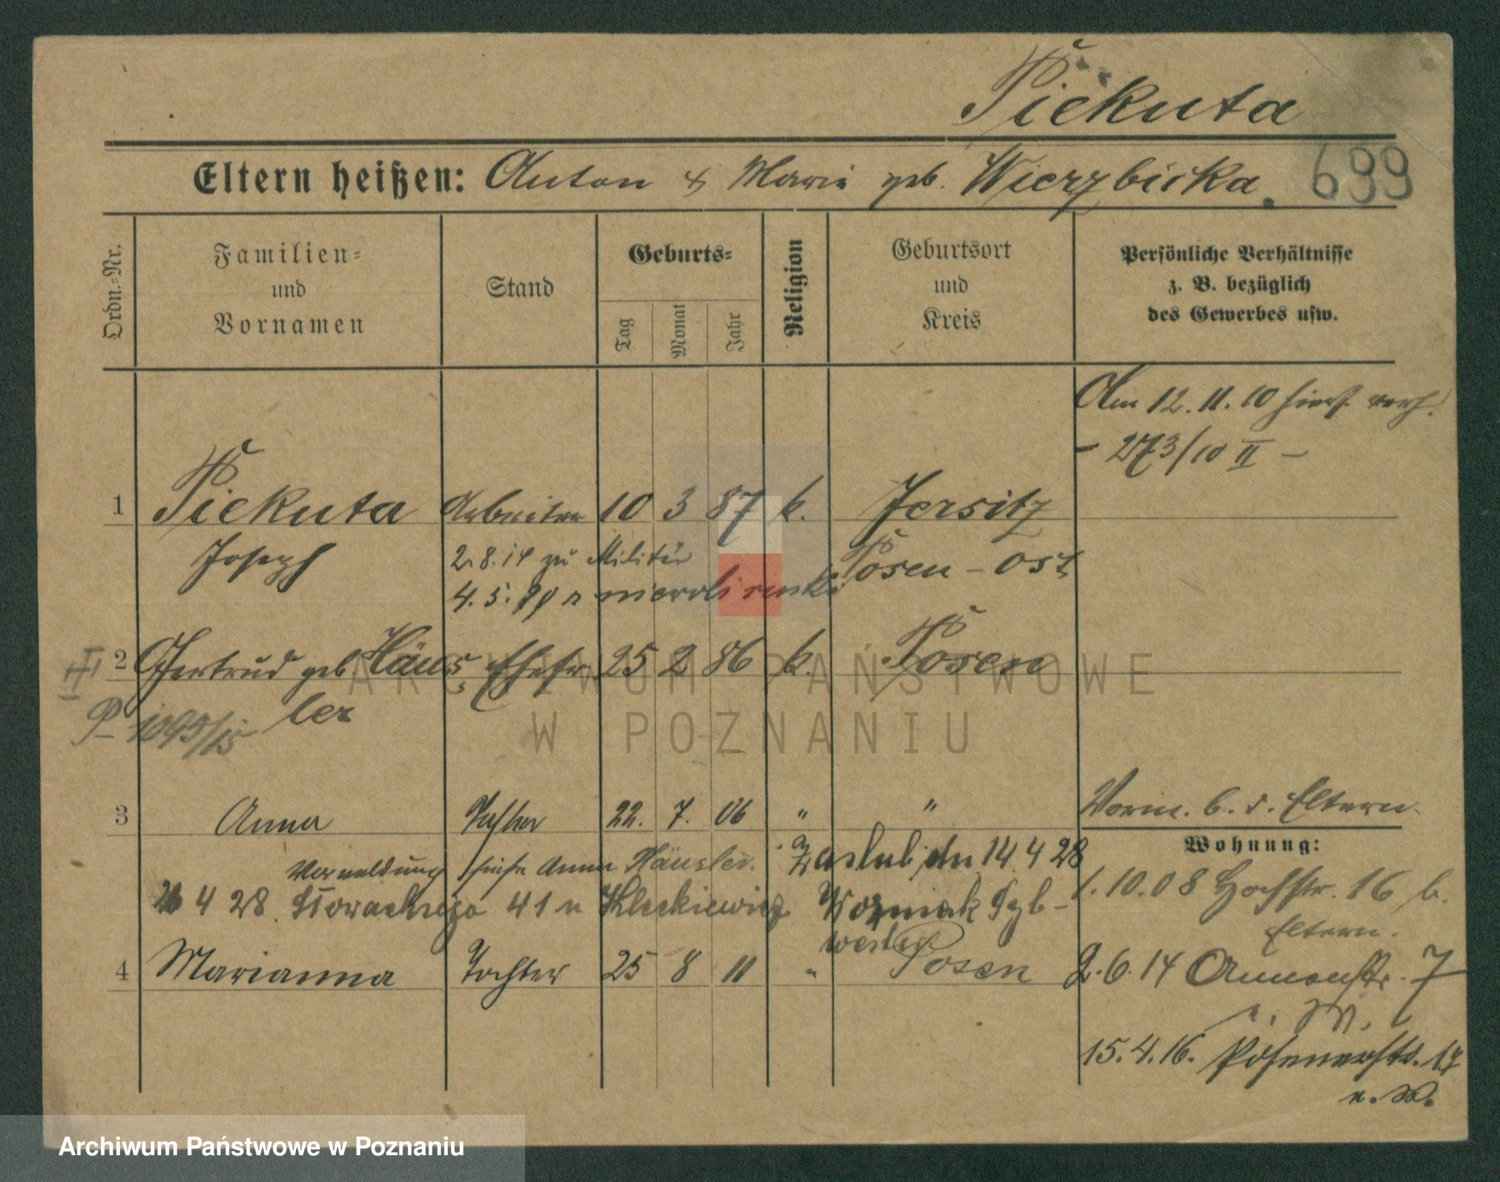 Piekuta
Eltern heißen: Anton & Marie geb. Wierzbicka.
699
Ordn.-Nr.
Familien-
und
Vornamen
Stand
Geburts-
Tag
Monat
Jahr
Religion
Geburtsort
und
Kreis
Persönliche Verhältnisse
z. B. bezüglich
des Gewerbes usw.
Am 12.11.10 hier verh.
- 273/10 II -
1 Piekuta Arbeiter 10 3 87 k. Jersitz
Joseph 2.8.14 zu Militär Posen-Ost
4.5.
2 Gertrud geb. Häus- Ehefr. 25 2 86 k. Posen
ler
P 1095/15
3 Anna Tochter 22. 7. 06 " "
Vorm. b. d. Eltern.
Wohnung:
Anna Häusler. zaślub. dn. 14.4 28
4 28 41 u Kleckiewicz Woźniak Syl-
wester
1.10.08 Hochstr. 16 b.
Eltern.
4 Marianna Tochter 25 8 11 " Posen
2.6.14 Annenstr. 7
15.4.16. Posenerstr. 17
u. W.
ARCHIWUM PAŃSTWOWE
W POZNANIU
Archiwum Państwowe w Poznaniu